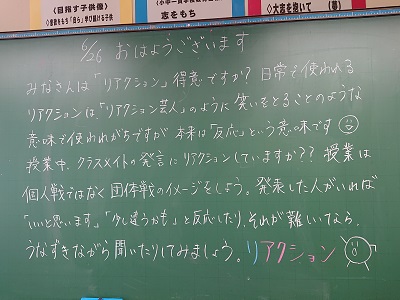 〈目指す子供像〉
◇夢をもち「自ら」学び続ける子供
志をもち
◇大志を抱いて(夢)
6/26 おはようございます
みなさんは「リアクション」得意ですか?日常で使われる
リアクションは、「リアクション芸人」のように笑いをとることのような
意味で使われがちですが本来は「反応」という意味です
授業中、クラスメイトの発言にリアクションしていますか??授業は
個人戦ではなく団体戦のイメージをしよう。発表した人がいれば
「いいと思います」「少し違うかも」と反応したり、それが難しいなら、
うなずきながら聞いたりしてみましょう。リアクション